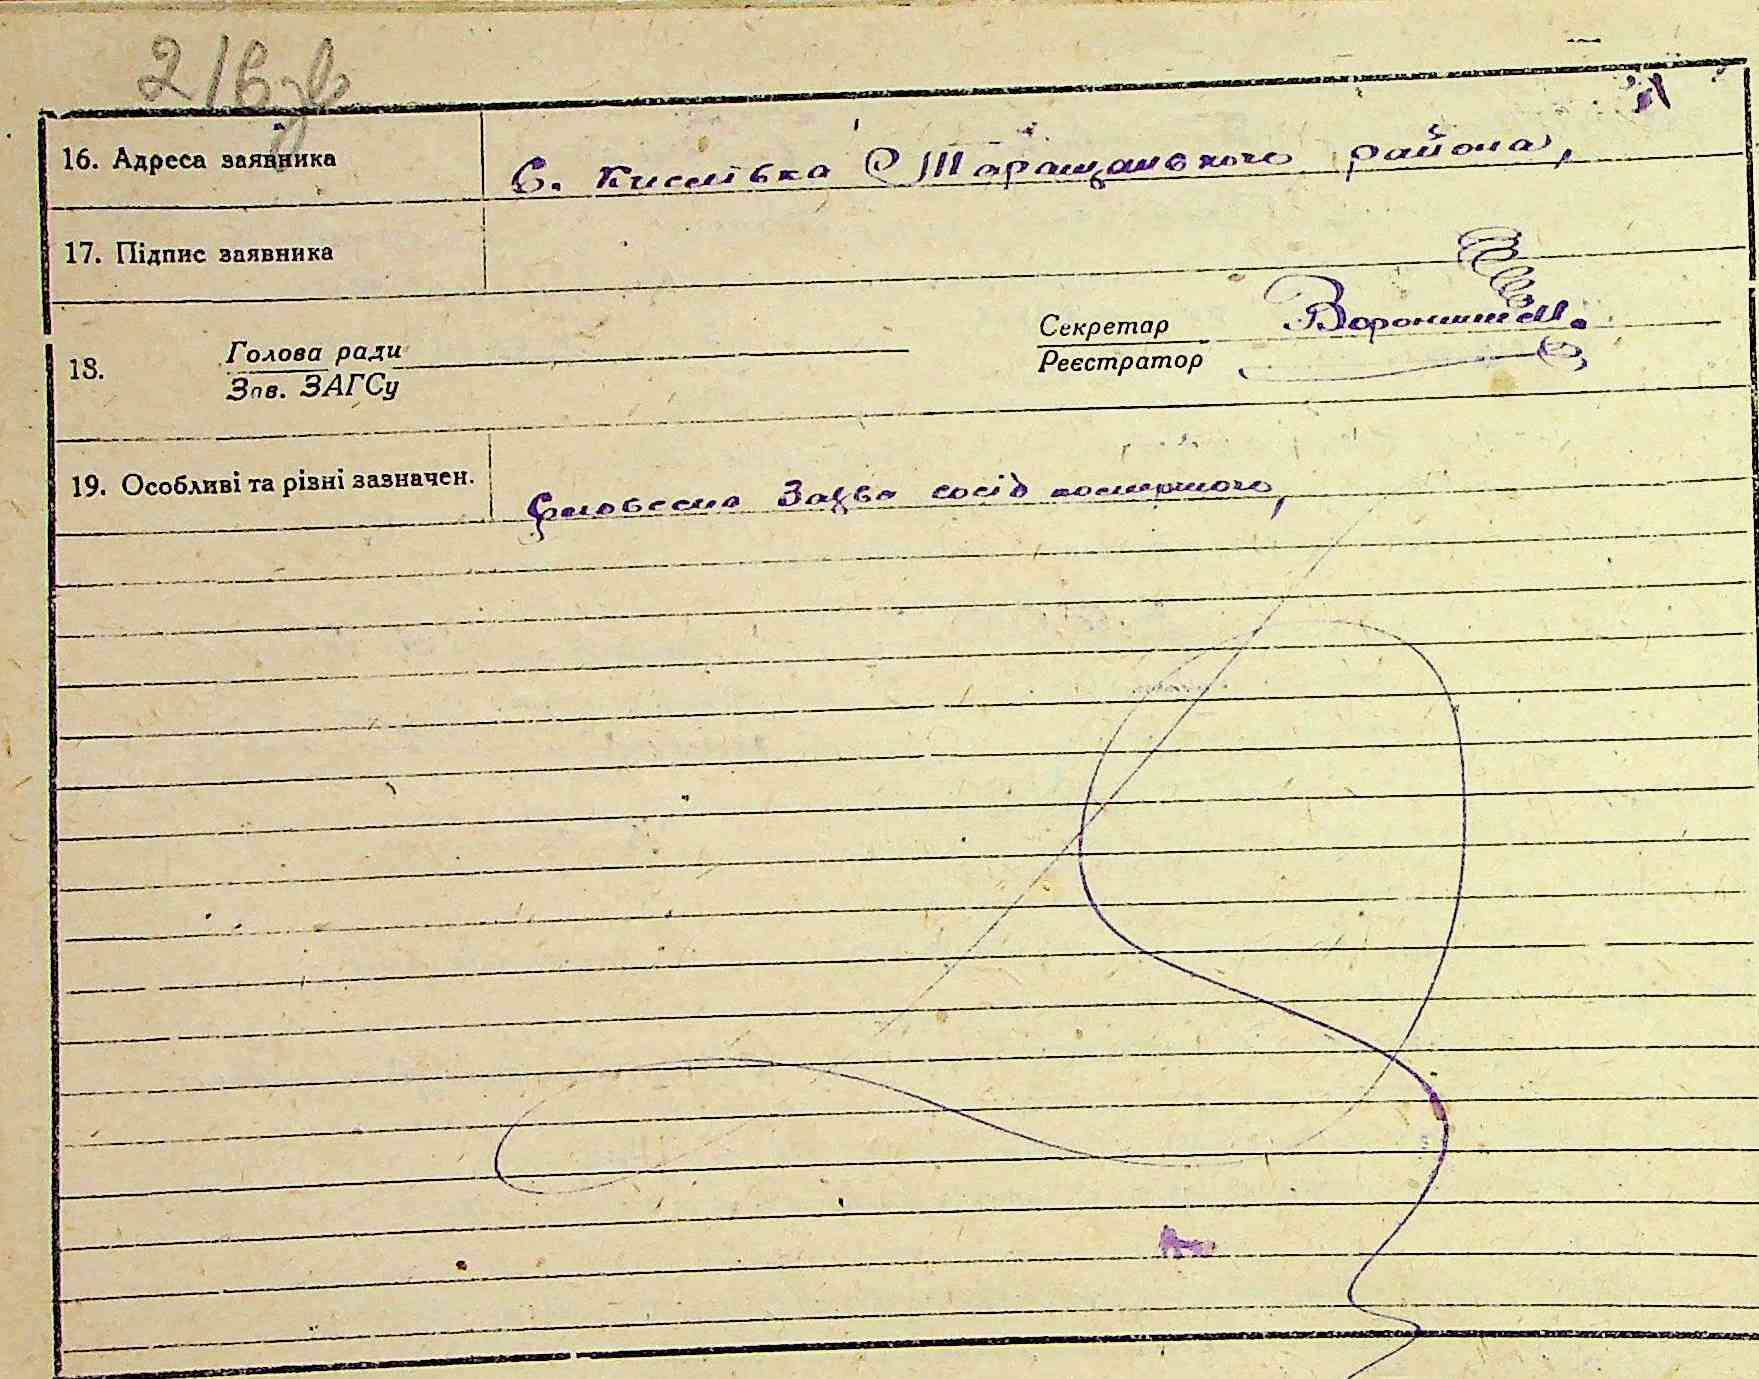 216 зв
16. Адреса заявника С. Кислівка Таращанського района,
17. Підпис заявника
18. Голова ради Секретар
Зав. ЗАГСу Реєстратор
19. Особливі та різні зазначен. Словесна Заява сосід